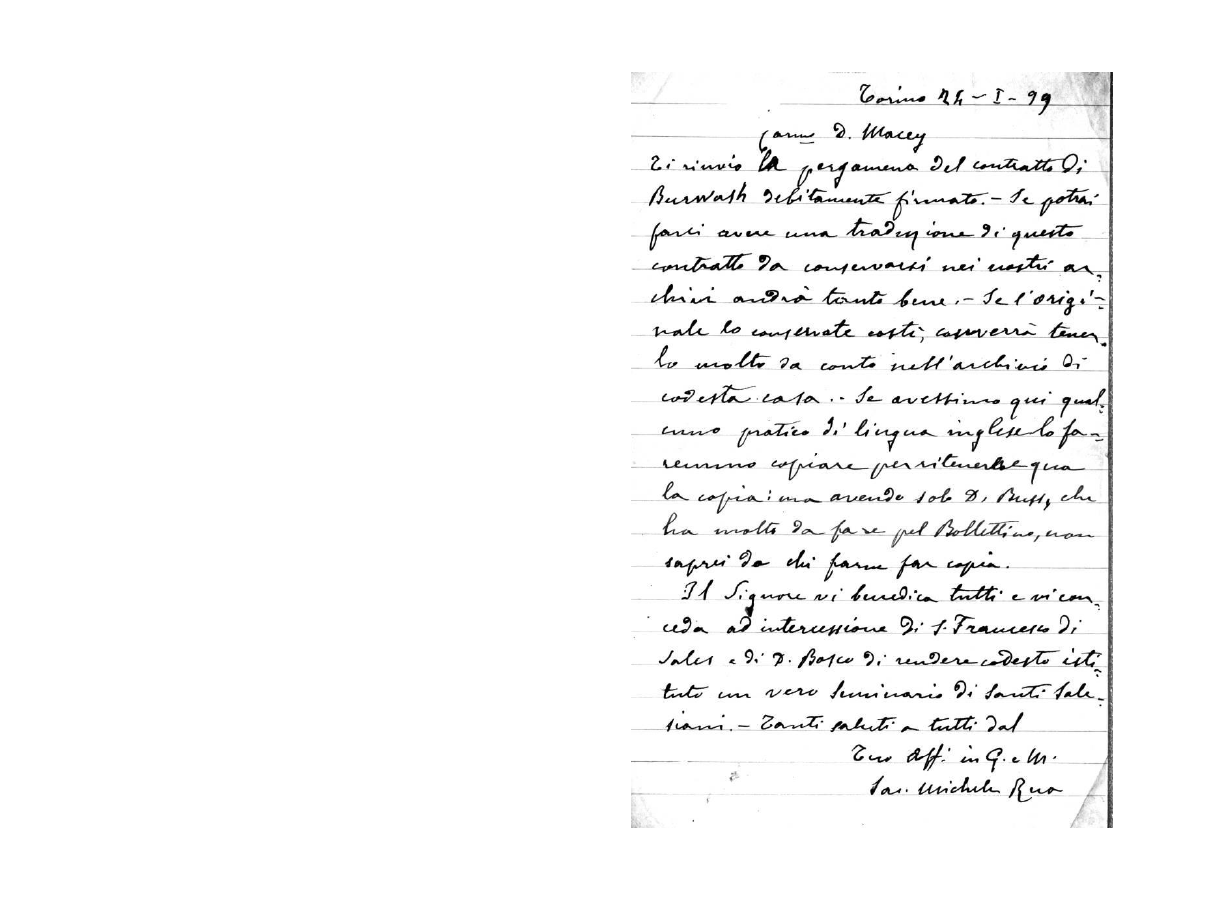 Torino 24 - I - 99
Carmo D. Macey
Ti rinvio la pergamena del contratto di
Burwash debitamente firmato. - Se potrai
farci avere una traduzione di questo
contratto da conservarsi nei nostri ar-
chivi andrà tanto bene. - Se l'origi-
nale lo conservate costì, converrà tener-
lo molto da conto nell'archivio di
codesta casa. - Se avessimo qui qual-
cuno pratico di lingua inglese lo fa-
remmo copiare per ritenerne qua
la copia: ma avendo solo D. Bussi, che
ha molto da fare pel Bollettino, non
saprei da chi farne far copia.
Il Signore vi benedica tutti e vi con-
ceda ad intercessione di S. Francesco di
Sales e di D. Bosco di rendere codesto isti-
tuto un vero seminario di santi Sale-
siani. - Tanti saluti a tutti dal
Tuo Aff. in G. e M.
Sac. Michele Rua